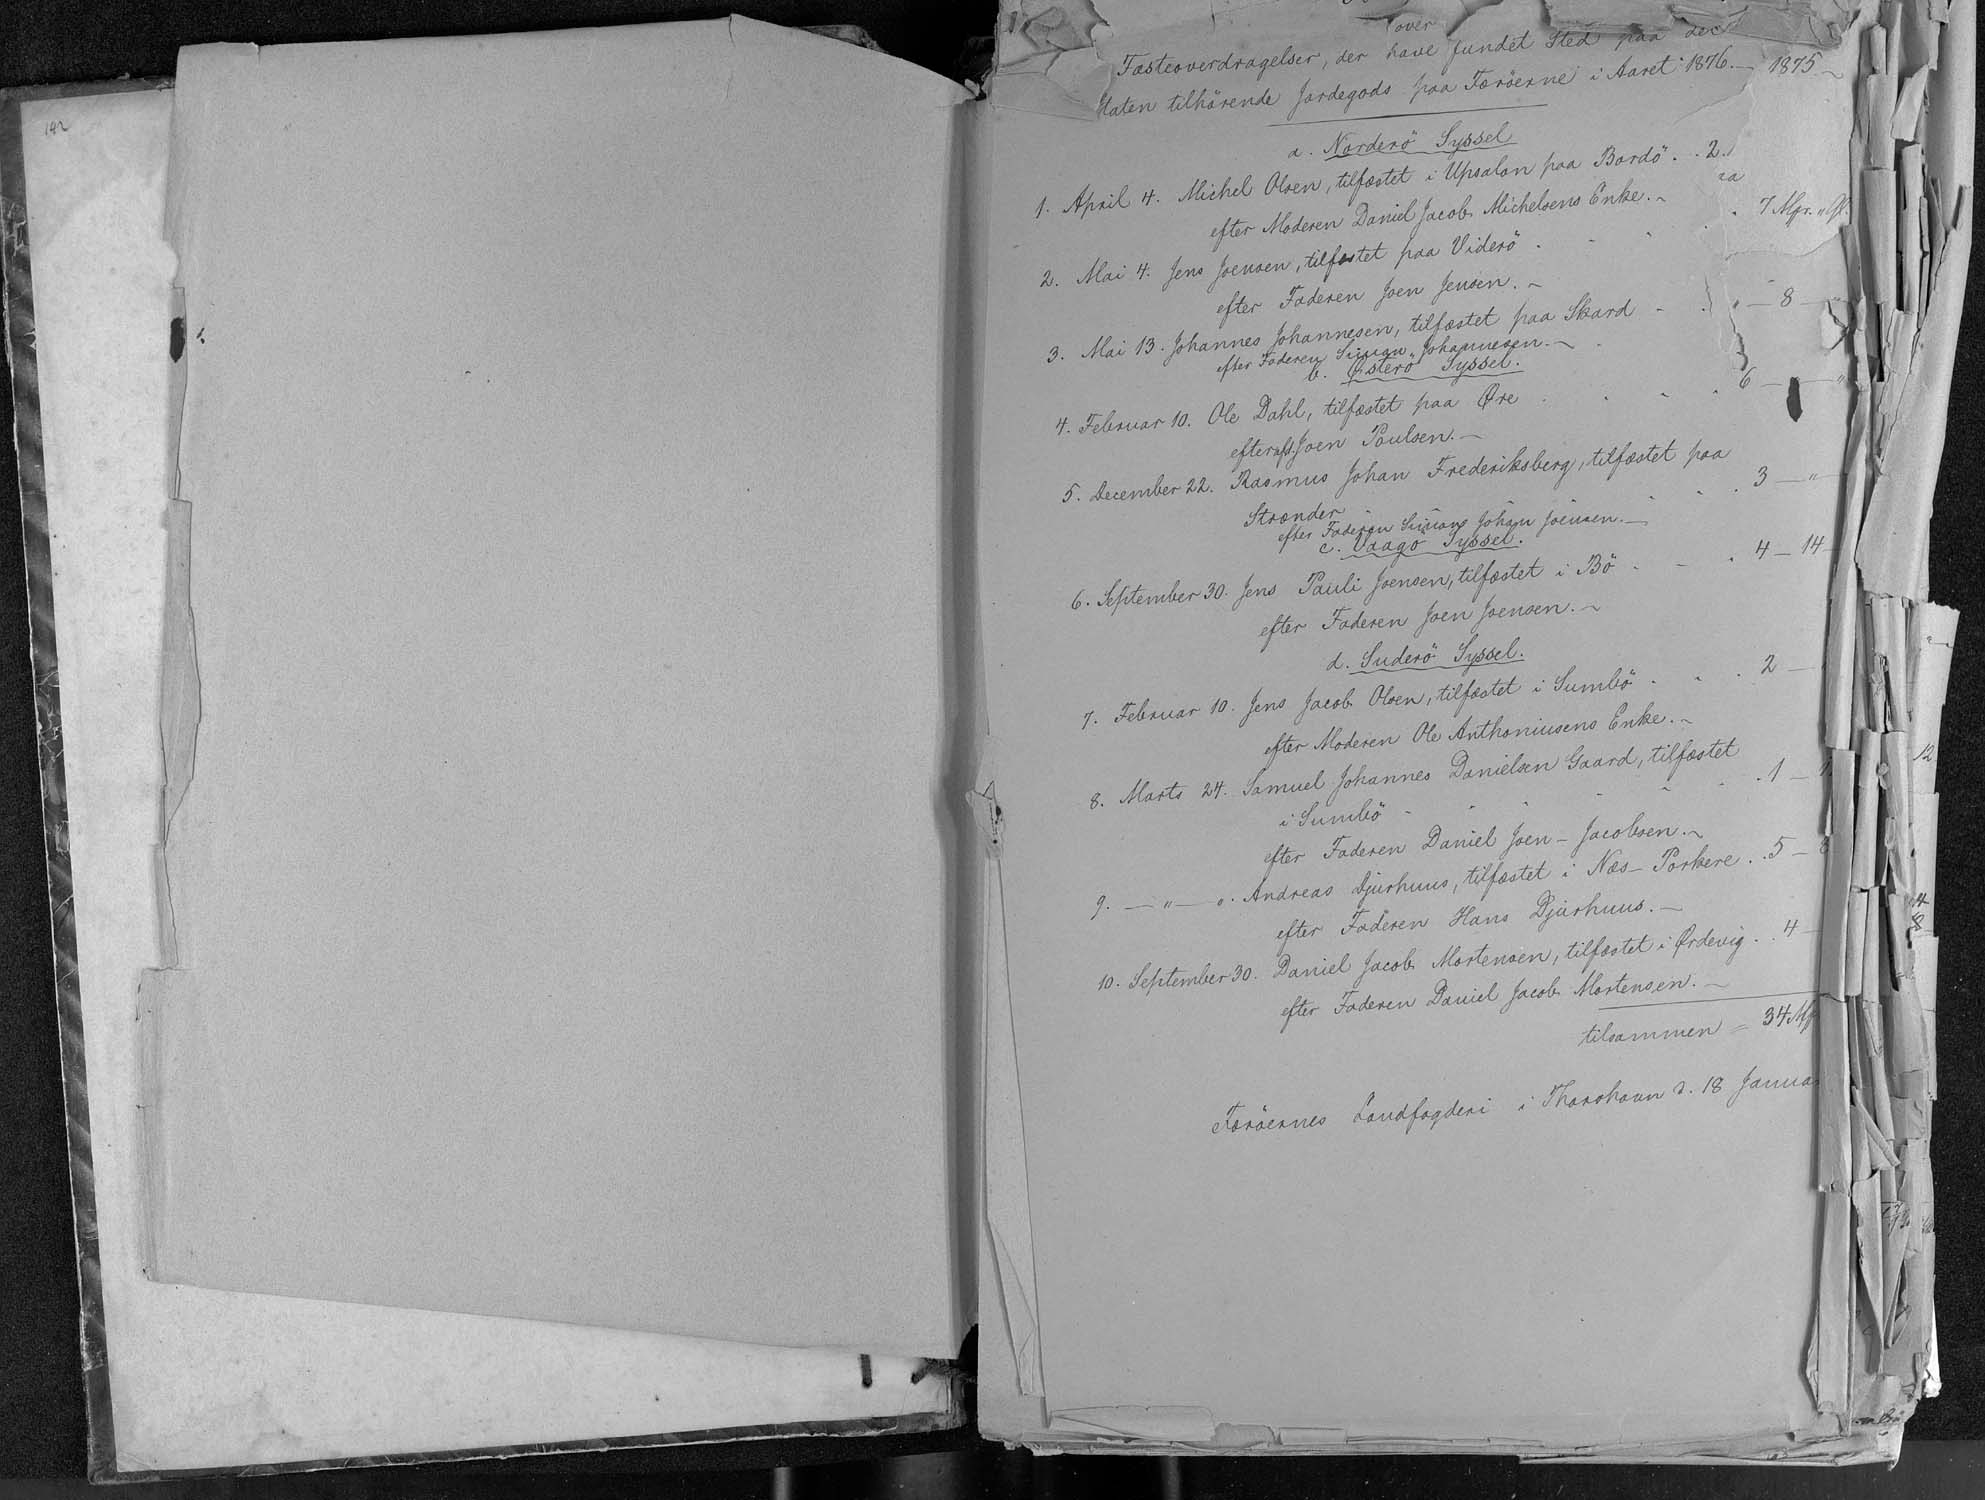 142
over
Fæsteoverdragelser, der have fundet Sted paa det
Staten tilhörende Jordegods paa Færöerne i Aaret 1876. — 1875
a. Norderö Syssel
1. April 4. Michel Olsen, tilfæstet i Upsalon paa Bordö . . 2
efter Moderen Daniel Jacob Michelsens Enke. —
2. Mai 4. Jens Joensen, tilfæstet paa Viderö . . . . 7 Mgr. „ Gl.
efter Faderen Joen Jensen. —
3. Mai 13. Johannes Johannesen, tilfæstet paa Skard . . „ — 8 — „
efter Faderen Simon Johannesen. —
b. Österö Syssel.
4. Februar 10. Ole Dahl, tilfæstet paa Øre . . . . 6 — „
efter afd. Joen Poulsen. —
5. December 22. Rasmus Johan Frederiksberg, tilfæstet paa
Strænder . . . . . . 3 — „
efter Faderen Simon Johan Joensen. —
c. Vaagö Syssel.
6. September 30. Jens Pauli Joensen, tilfæstet i Bö . . . 4 — 14
efter Faderen Joen Joensen. —
d. Suderö Syssel.
7. Februar 10. Jens Jacob Olsen, tilfæstet i Sumbö . . . 2 —
efter Moderen Ole Anthoniusens Enke. —
8. Marts 24. Samuel Johannes Danielsen Gaard, tilfæstet
i Sumbö . . . . . . 1 — 1
efter Faderen Daniel Joen-Jacobsen. —
9. — „ — „. Andreas Djurhuus, tilfæstet i Næs-Porkere . . 5 — 8
efter Faderen Hans Djurhuus. —
10. September 30. Daniel Jacob Mortensen, tilfæstet i Ørdevig . . 4 —
efter Faderen Daniel Jacob Mortensen. —
tilsammen = 34 Mg
Færöernes Landfogderi i Thorshavn d. 18 Janua